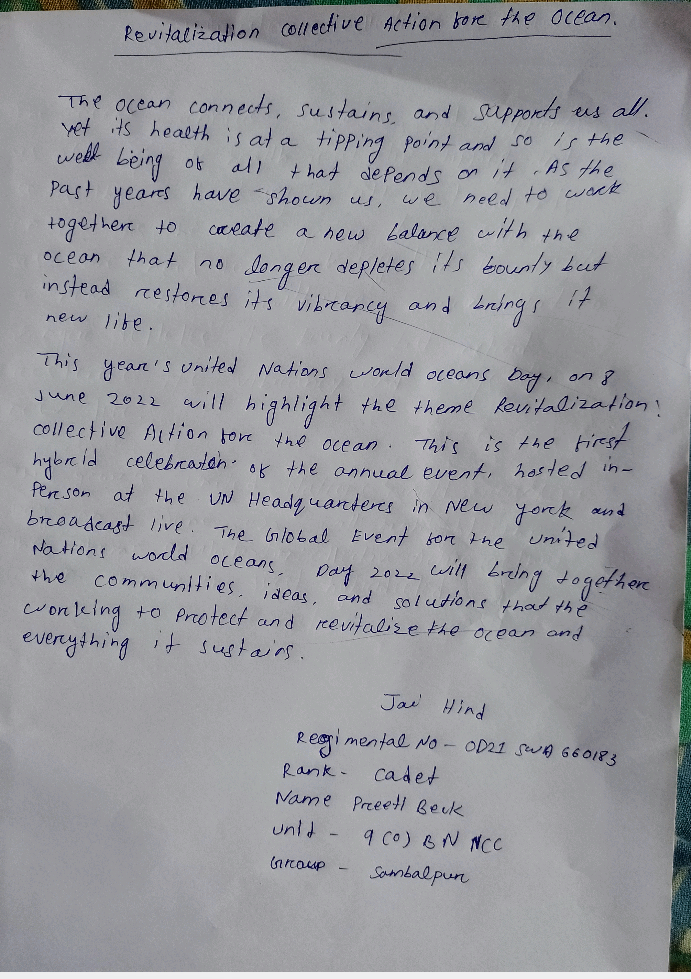 Revitalization collective Action fore the Ocean.
The ocean connects, sustains, and supports us all.
yet its health is at a tipping point and so is the
well being of all that depends on it. As the
past years have shown us, we need to work
together to create a new balance with the
ocean that no longer depletes its bounty but
instead restores its vibrancy and brings it
new life.
This year's united Nations world oceans Day, on 8
June 2022 will highlight the theme Revitalization:
collective Action fore the ocean. This is the first
hybrid celebration of the annual event, hosted in-
Person at the UN Headquarters in New york and
broadcast live. The Global Event for the united
Nations world oceans, Day 2022 will bring together
the communities, ideas, and solutions that the
working to protect and revitalize the ocean and
everything it sustains.
Jai Hind
Regimental No - OD21 SWA 660183
Rank - cadet
Name Preeti Beck
unit - 9 (O) BN NCC
Group - Sambalpur